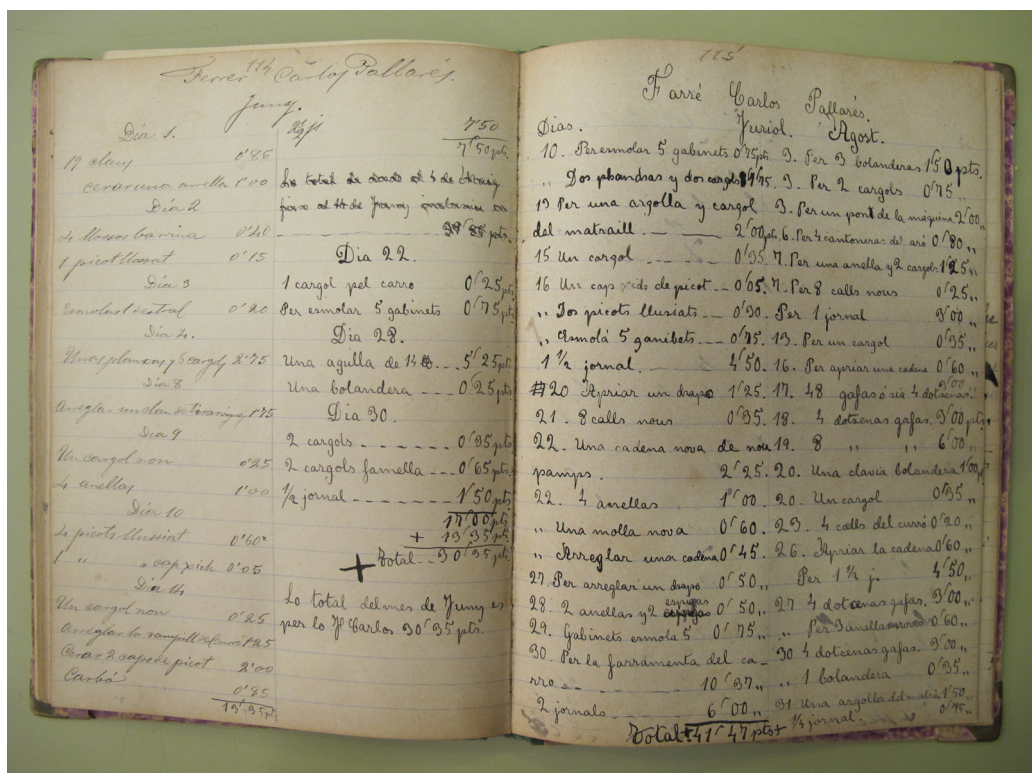 114
Ferrer Carlos Pallarés.
Juny.
Día 1.
12 claus 0'85
cerar una anella 1'00
Día 2
4 llossos barrina 0'40
1 picot llusat 0'15
Día 3
esmolnt destral 0'20
Día 4.
Unas planxas y 5 cargols 2'75
Día 8
Arreglar un clau de 1'75
Día 9
Un cargol nou 0'25
4 anellas 1'00
Día 10
4 picots llussiat 0'60
1 " " cap pich 0'05
Día 14
Un cargol nou 0'25
Arreglar lo del carro 1'25
Cerar 2 caps de picot 2'00
Carbó
0'85
13'35 pts
7'50
7'50 pts.
Lo total de desde el 4 de Maig
39'85 pts.
Dia 22.
1 cargol pel carro 0'25 pts
Per esmolar 5 gabinets 0'75 pts
Dia 28.
Una agulla de 14 5'25 pts
Una bolandera 0'25 pts
Dia 30.
2 cargols 0'35 pts
2 cargols famella 0'65 pts.
1/2 jornal 1'50 pts
17'00 pts
+ 13'35 pts
+ Total 30'35 pts
Lo total del mes de Juny es
per lo H Carlos 30'35 pts.
115
Farré Carlos Pallarés.
Dias. Juriol. Agost.
10. Per esmolar 5 gabinets 0'75 pts.
" Dos phandas y dos cargols
13 Per una argolla y cargol
del matraill. 2'00 pts.
15 Un cargol 0'35.
16 Un cap de picot 0'05.
" Dos picots llusiats 0'30.
" Asmolá 5 ganibets 0'75.
1 1/2 jornal. 4'50.
20 Apriar un drapo 1'25.
21. 8 calls nous 0'35.
22. Una cadena nova de nou
pamps. 2'25.
22. 4 anellas 1'00
" Una molla nova 0'60.
" Arreglar una cadena 0'45.
27. Per arreglar un drapo 0'50 "
28. 2 anellas y 2 espugas 0'50 "
29. Gabinets esmola 5 0'75 "
30. Per la farramenta del ca-
rro 10'37 "
2 jornals 6'00 "
Total + 41'47 pts +
3. Per 3 bolanderas 1'50 pts.
3. Per 2 cargols 0'75 "
3. Per un pont de la máquina 2'00
6. Per 4 cantoneras del aró 0'80 "
7. Per una anella y 2 cargols 1'25 "
7. Per 8 calls nous 0'25 "
Per 1 jornal 3'00 "
13. Per un cargol 0'35 "
16. Per apriar une cadena 0'60 "
17. 48 gafas ó sia 4 dotxenas. 3'00
18. 4 dotxenas gafas. 3'00 pts.
19. 8 " " 6'00 "
20. Una clavia bolandera 1'00 pt
20. Un cargol 0'35 "
23. 4 calls del curró 0'20 "
26. Apriar la cadena 0'60 "
Per 1 1/2 j. 4'50 "
27. 4 dotcenas gafas. 3'00 "
" Per 3 anellas novas 0'60 "
30 4 dotcenas gafas. 3'00 "
" 1 bolandera 0'35 "
31 Una argolla del 1'50 "
1/4 jornal. 0'75 "